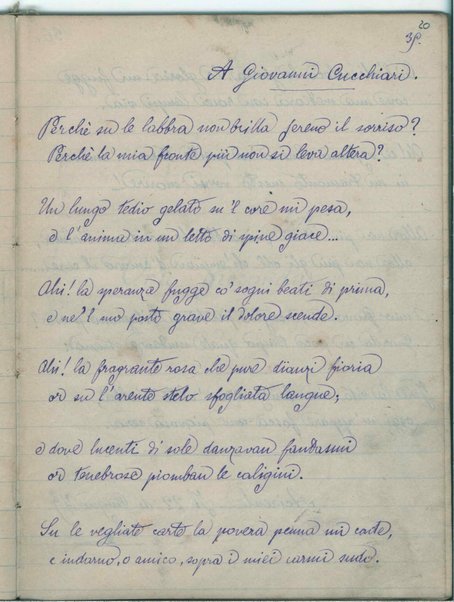 20
38.
A Giovanni Cucchiari.
Perchè su le labbra non brilla sereno il sorriso?
Perchè la mia fronte più non si leva altera?
Un lungo tedio gelato su 'l core mi pesa,
e l'anima in un letto di spine giace...
Ahi! la speranza fugge co' sogni beati di prima,
e ne 'l suo posto grave il dolore scende.
Ahi! la fragrante rosa che pure dianzi fioria
or su l'arente stelo sfogliata langue;
e dove lucenti di sole danzavan fantasmi
or tenebrose piomban le caligini.
Su le vegliate carte la povera penna mi cade,
e indarno, o amico, sopra i miei carmi sudo.